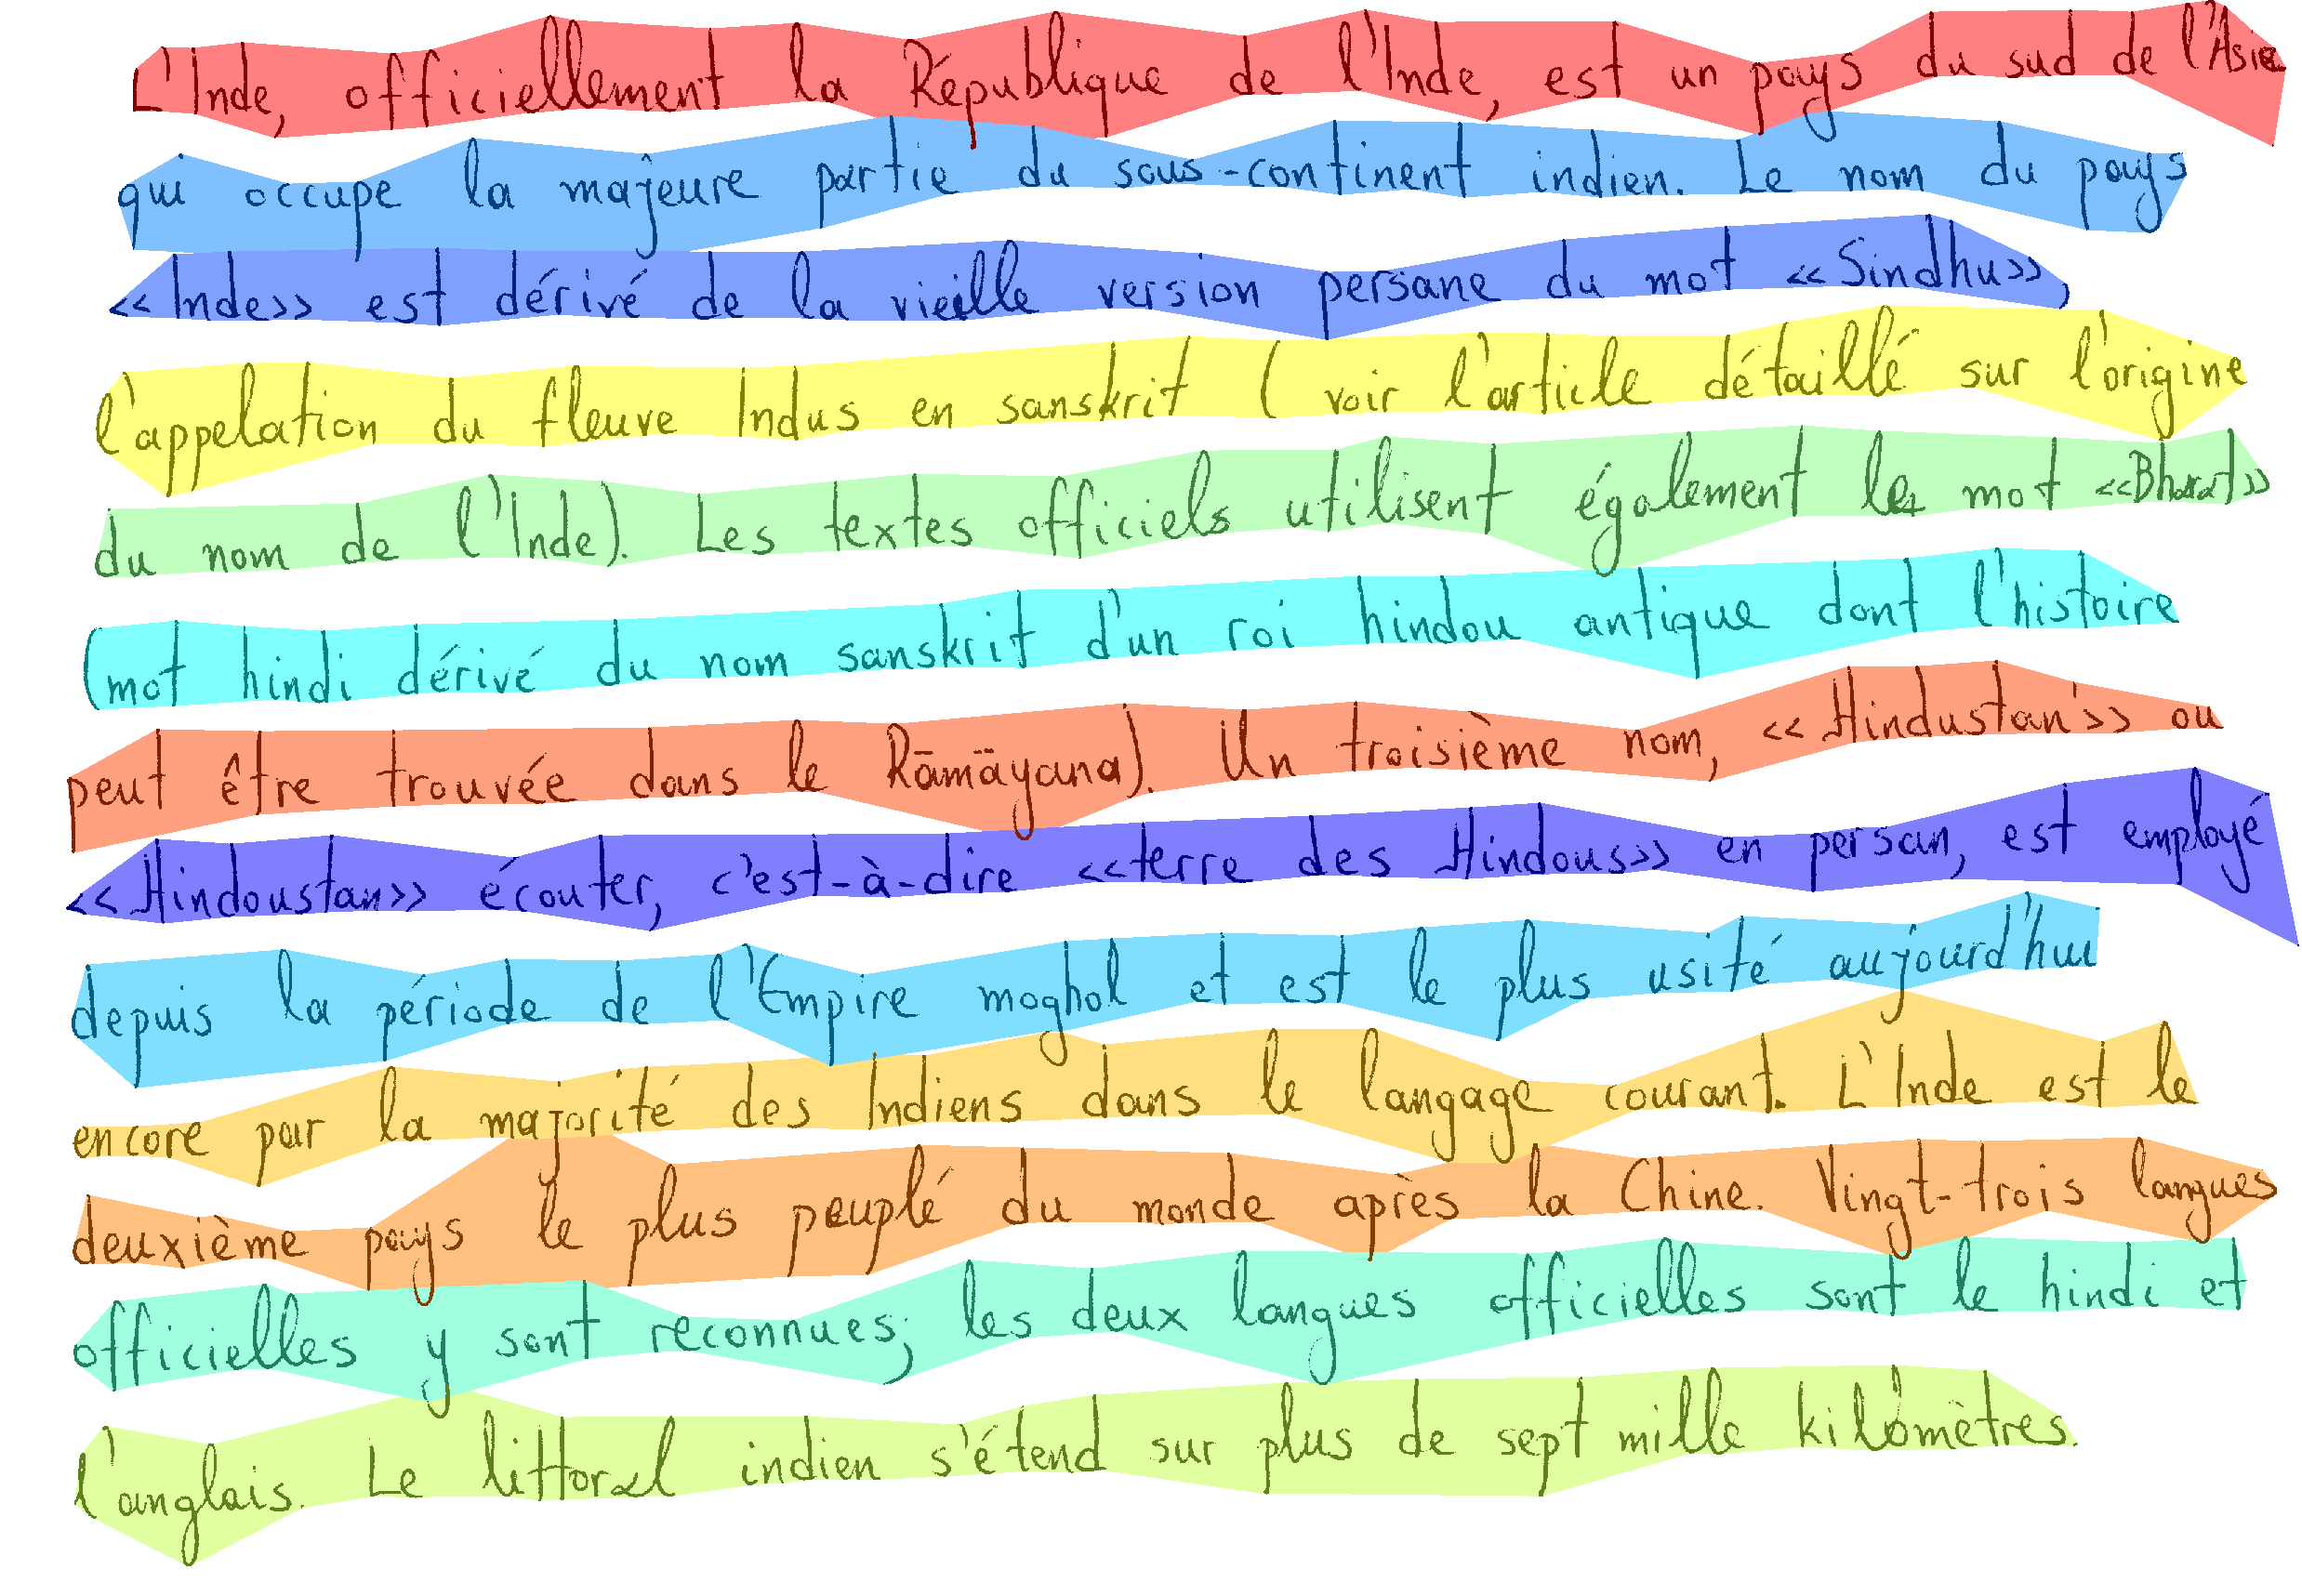 L'Inde, officiellement la République de l'Inde, est un pays du sud de l'Asie
qui occupe la majeure partie du sous-continent indien. Le nom du pays
<<Inde>> est dérivé de la vieille version persane du mot <<Sindhu>>,
l'appelation du fleuve Indus en sanskrit ( voir l'article détaillé sur l'origine
du nom de l'Inde). Les textes officiels utilisent également le mot <<Bharat>>
(mot hindi dérivé du nom sanskrit d'un roi hindou antique dont l'histoire
peut être trouvée dans le Rāmāyana). Un troisième nom, <<Hindustan>> ou
<<Hindoustan>> écouter, c'est-à-dire <<terre des Hindous>> en persan, est employé
depuis la période de l'Empire moghol et est le plus usité aujourd'hui
encore par la majorité des Indiens dans le langage courant. L'Inde est le
deuxième pays le plus peuplé du monde après la Chine. Vingt-trois langues
officielles y sont reconnues; les deux langues officielles sont le hindi et
l'anglais. Le littoral indien s'étend sur plus de sept mille kilomètres.